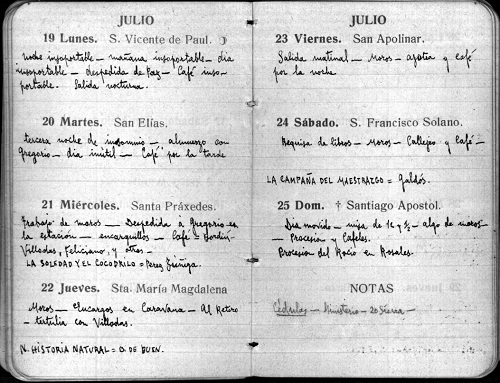 JULIO
19 Lunes. S. Vicente de Paul.
noche insoportable — mañana insoportable — dia
insoportable — despedida de Paz — Café inso-
portable. Salida nocturna.
20 Martes. San Elías.
tercera noche de insomnio — almuerzo con
Gregorio — dia inutil — Café por la tarde
21 Miércoles. Santa Práxedes.
Trabajo de moros — Despedida á Gregorio en
la estación — encarguillos — Café =
Villodas, Feliciano, y otros —
LA SOLEDAD Y EL COCODRILO = Perez Zúñiga.
22 Jueves. Sta. María Magdalena
Moros — Encargos en Caravana — Al Retiro
— tertulia con Villodas.
N. HISTORIA NATURAL = O. DE BUEN.
JULIO
23 Viernes. San Apolinar.
Salida matinal — Moros — azotea y Café
por la noche
24 Sábado. S. Francisco Solano.
Requisa de libros — Moros — Callejeo y Café —
LA CAMPAÑA DEL MAESTRAZGO = Galdós.
25 Dom. † Santiago Apostol.
Dia movido — misa de 12 y ½ — algo de moros
— Procesión y Cafeles.
Procesion del Rocío en Rosales.
NOTAS
Cédulas — Ministerio — 20 Sierra —